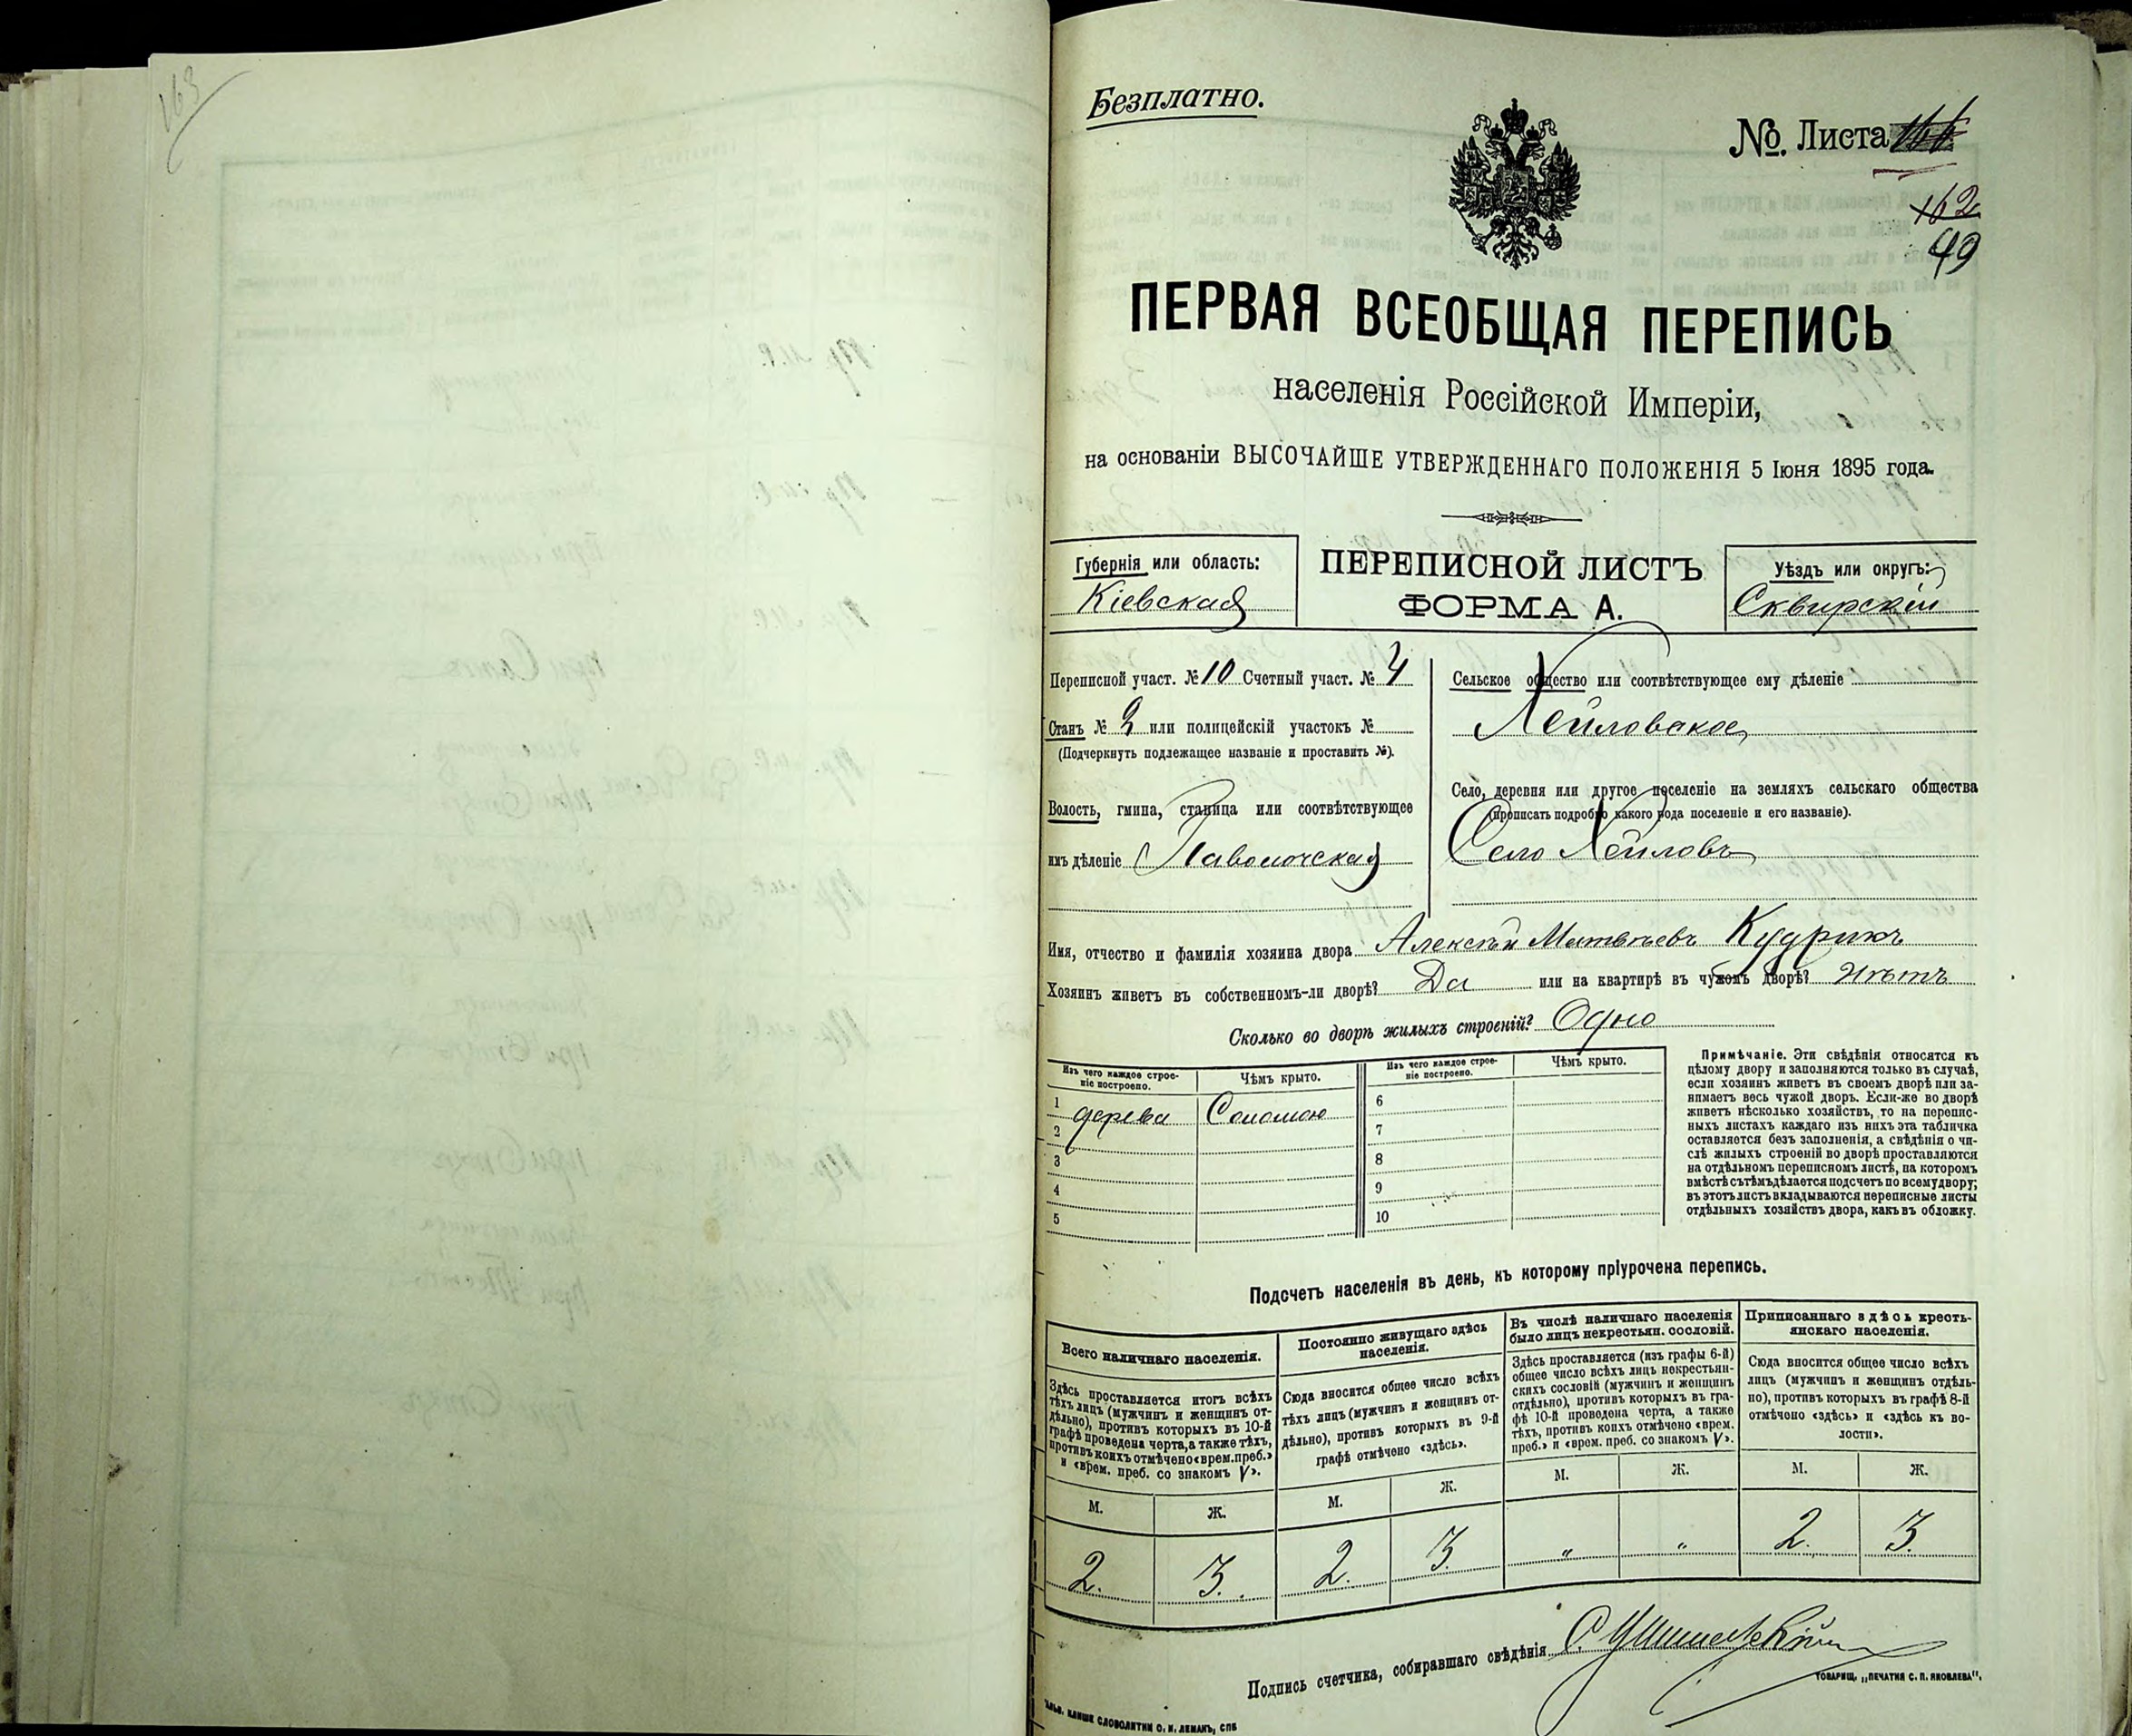 163
Безплатно.
№ Листа
162
49
ПЕРВАЯ ВСЕОБЩАЯ ПЕРЕПИСЬ
населенія Россійской Имперіи,
на основаніи ВЫСОЧАЙШЕ УТВЕРЖДЕННАГО ПОЛОЖЕНІЯ 5 Іюня 1895 года.
Губернія или область:
Кіевская
ПЕРЕПИСНОЙ ЛИСТЪ
ФОРМА А.
Уѣздъ или округъ:
Сквирскій
Переписной участ. № 10 Счетный участ. № 4
Станъ № 2 или полицейскій участокъ №
(Подчеркнуть подлежащее названіе и проставить №).
Волость, гмина, станица или соотвѣтствующее
имъ дѣленіе Паволочская
Сельское общество или соотвѣтствующее ему дѣленіе
Хейловское
Село, деревня или другое поселеніе на земляхъ сельскаго общества
(прописать подробно какого рода поселеніе и его названіе).
Село Хейловъ
Имя, отчество и фамилія хозяина двора Алексѣй Матвѣевъ Кудрикъ
Хозяинъ живетъ въ собственномъ-ли дворѣ? Да или на квартирѣ въ чужомъ дворѣ? нѣтъ
Сколько во дворѣ жилыхъ строеній? Одно
Изъ чего каждое строе-
ніе построено.
Чѣмъ крыто.
Изъ чего каждое строе-
ніе построено.
Чѣмъ крыто.
1 дерева Соломою
2
3
4
5
6
7
8
9
10
Примѣчаніе. Эти свѣдѣнія относятся къ
цѣлому двору и заполняются только въ случаѣ,
если хозяинъ живетъ въ своемъ дворѣ или за-
нимаетъ весь чужой дворъ. Если-же во дворѣ
живетъ нѣсколько хозяйствъ, то на перепис-
ныхъ листахъ каждаго изъ нихъ эта табличка
оставляется безъ заполненія, а свѣдѣнія о чи-
слѣ жилыхъ строеній во дворѣ проставляются
на отдѣльномъ переписномъ листѣ, на которомъ
вмѣстѣ съ тѣмъ дѣлается подсчетъ по всему двору;
въ этотъ листъ вкладываются переписные листы
отдѣльныхъ хозяйствъ двора, какъ въ обложку.
Подсчетъ населенія въ день, къ которому пріурочена перепись.
Всего наличнаго населенія.
Здѣсь проставляется итогъ всѣхъ
тѣхъ лицъ (мужчинъ и женщинъ от-
дѣльно), противъ которыхъ въ 10-й
графѣ проведена черта, а также тѣхъ,
противъ коихъ отмѣчено «врем. преб.»
и «врем. преб. со знакомъ V».
М. Ж.
2. 3.
Постоянно живущаго здѣсь
населенія.
Сюда вносится общее число всѣхъ
тѣхъ лицъ (мужчинъ и женщинъ от-
дѣльно), противъ которыхъ въ 9-й
графѣ отмѣчено «здѣсь».
М. Ж.
2. 3.
Въ числѣ наличнаго населенія
было лицъ некрестьян. сословій.
Здѣсь проставляется (изъ графы 6-й)
общее число всѣхъ лицъ некрестьян-
скихъ сословій (мужчинъ и женщинъ
отдѣльно), противъ которыхъ въ гра-
фѣ 10-й проведена черта, а также
тѣхъ, противъ коихъ отмѣчено «врем.
преб.» и «врем. преб. со знакомъ V».
М. Ж.
" "
Приписаннаго здѣсь кресть-
янскаго населенія.
Сюда вносится общее число всѣхъ
лицъ (мужчинъ и женщинъ отдѣль-
но), противъ которыхъ въ графѣ 8-й
отмѣчено «здѣсь» и «здѣсь къ во-
лости».
М. Ж.
2. 3.
Подпись счетчика, собиравшаго свѣдѣнія
ТОВАРИЩ. „ПЕЧАТНЯ С. П. ЯКОВЛЕВА".
КЛИШЕ СЛОВОЛИТНИ О. И. ЛЕМАНЪ, СПБ